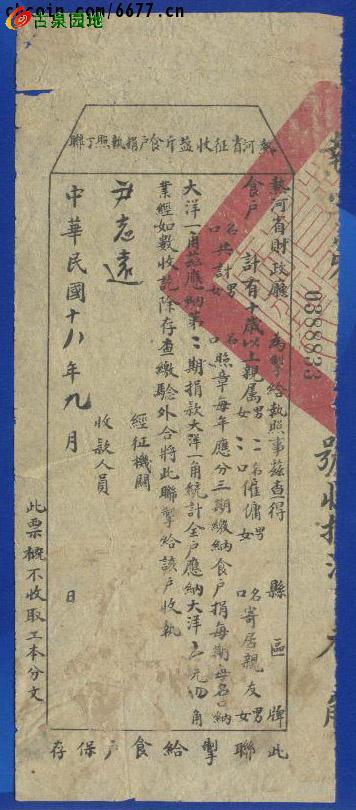 chcoin.com/6677.cn
古泉园地
热河省征收盐斤食户捐执照丁聯
热河省財政廳 為掣給執照事茲查得 縣 區 牌
食戶 計有十歲以上親属男二名女二口僱傭男 名女 口寄居親友男
名女 口共計男 名女 口照章每年應分三期繳納食戶捐每期每名口納
大洋一角茲應納第二期捐款大洋一角統計全戶應納大洋 元四角
業經如數收訖除存查繳驗外合將此聯掣給該戶收執
經征機關
尹志遠
收款人員
中華民國十八年九月 日
此票概不收取工本分文
此聯掣給食戶保存
0388833
號收捐洋